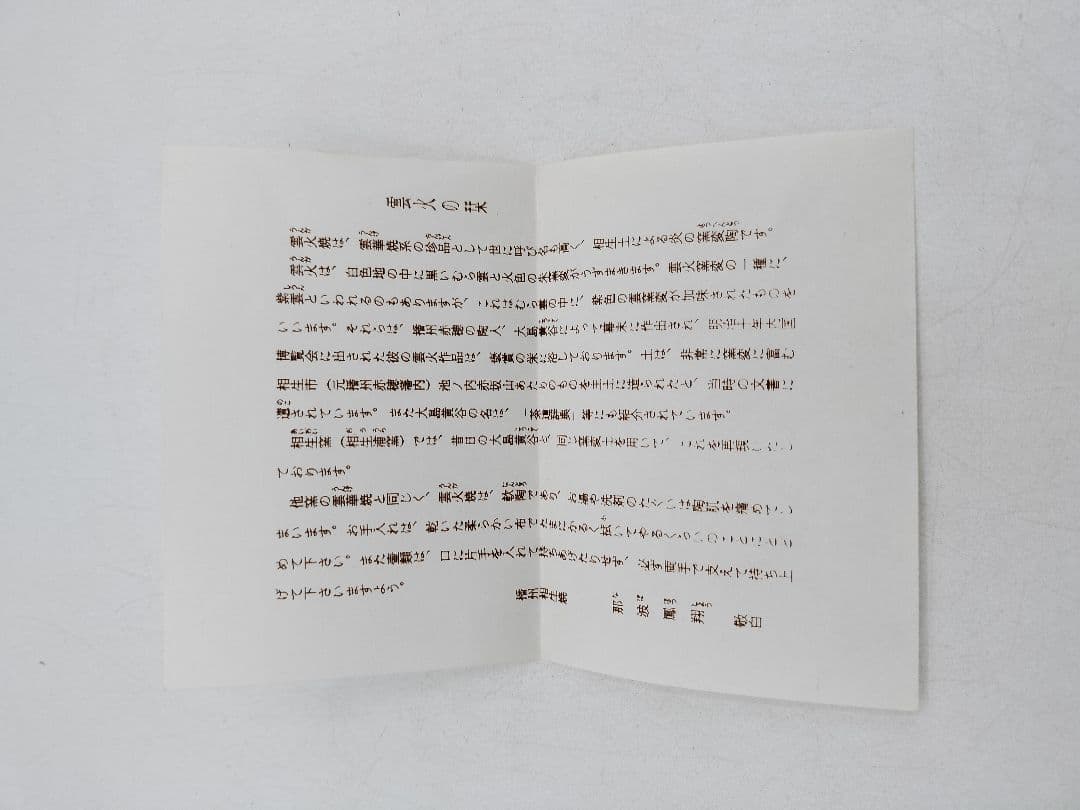 雲火の栞
雲火焼は、雲華焼系の珍品として世に呼び名も高く、相生土による炎の窯変陶です。
雲火は、白色地の中に黒いむら雲と火色の朱窯変がうずまきます。雲火窯変の一種に、
紫雲といわれるのもありますが、これはむら雲の中に、紫色の雲窯変が加味されたものを
いいます。それらは、播州赤穂の陶人、大島黄谷によって幕末に作出され、明治十年大
博覧会に出された彼の雲火作品は、褒賞の栄に浴しております。土は、非常に窯変に富む
相生市（元播州赤穂藩内）池ノ内赤坂山あたりのものを主土に造られたと、当時の文書に
遺されています。また大島黄谷の名は、「茶道辞典」等にも紹介されています。
相生窯（相生浦窯）では、昔日の大島黄谷と、同じ窯変土を用いて、これを再現し
ております。
他窯の雲華焼と同じく、雲火焼は、軟陶であり、お湯や洗剤のたぐいは陶肌を痛めてし
まいます。お手入れは、乾いた柔らかい布でたまにかるく拭いてやるくらいのことにとど
めて下さい。また壷類は、口に片手を入れて持ちあげたりせず、必ず両手で支えて持ち上
げて下さいますよう。
播州相生焼
那波鳳翔
敬白